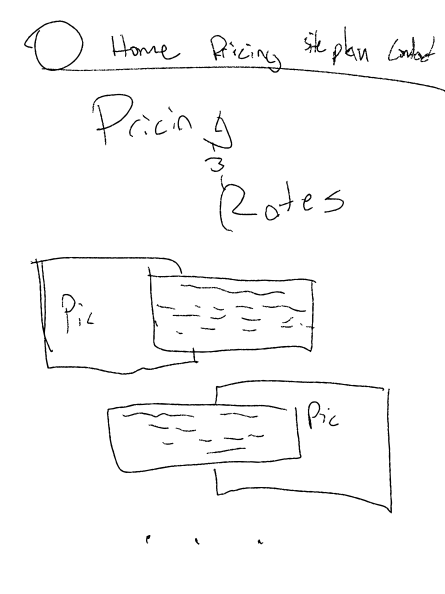 Home Pricing site plan Contact
Pricing
&
Rates
Pic
Pic